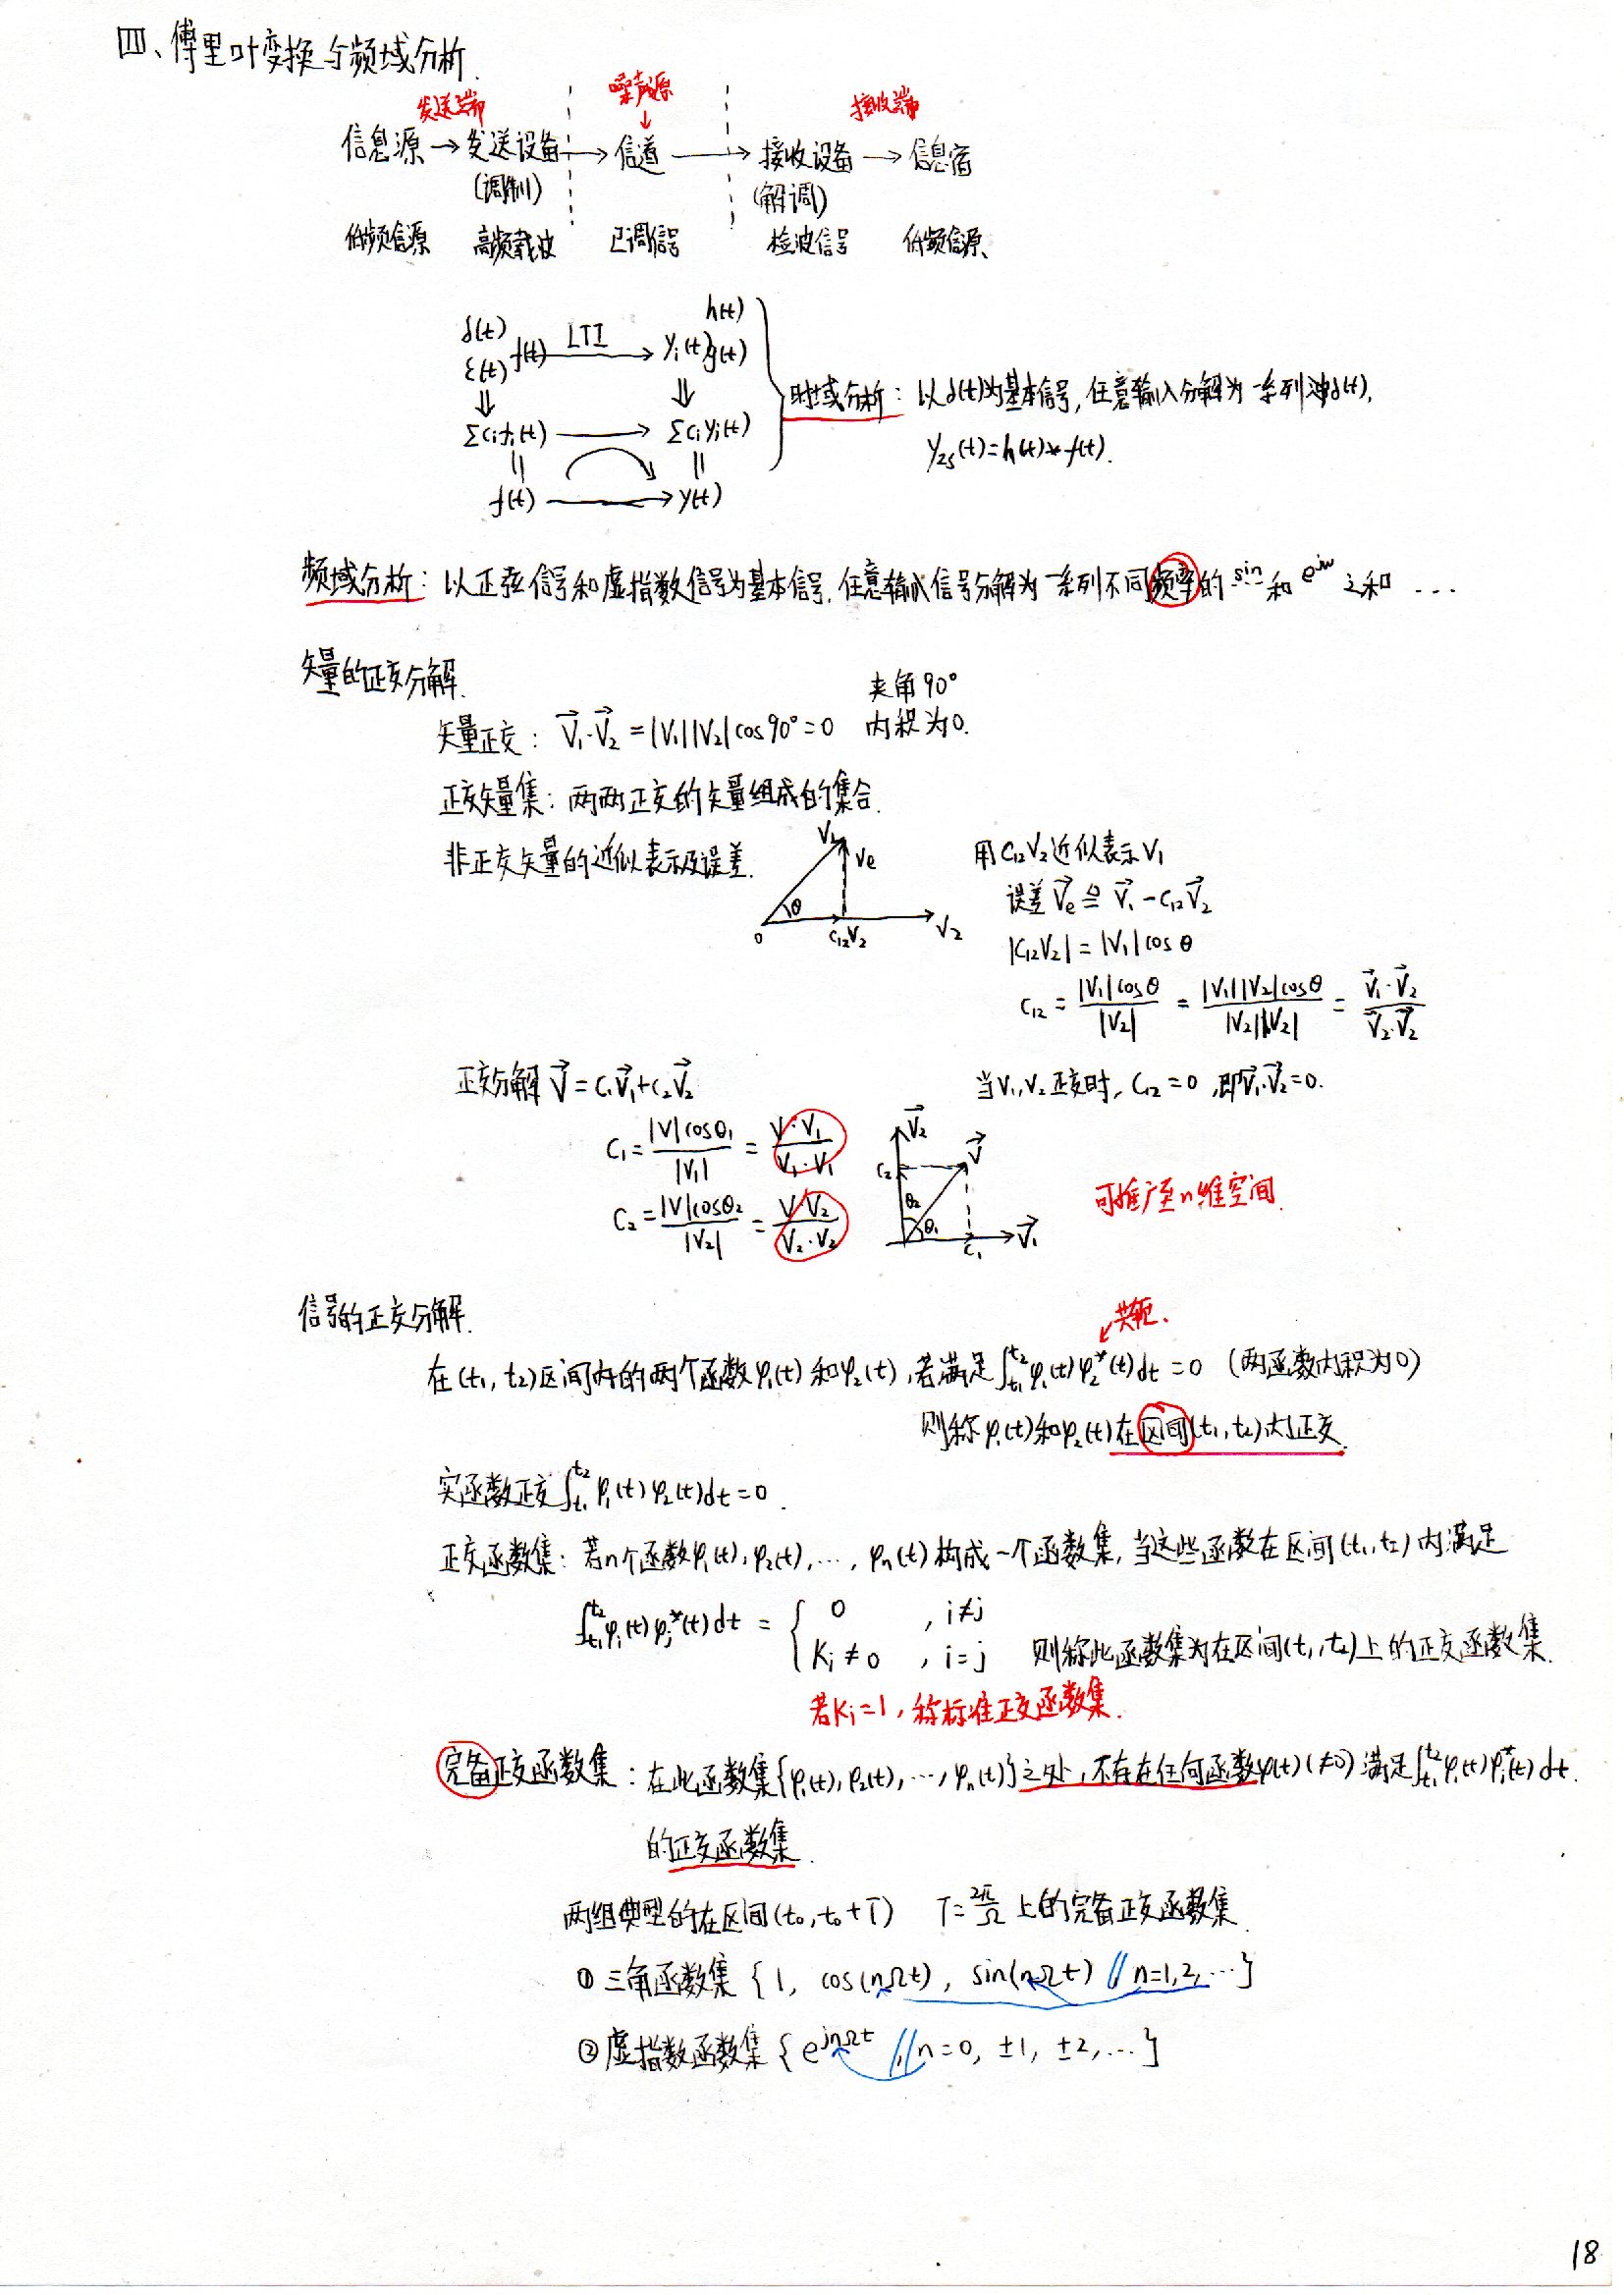 四、傅里叶变换与频域分析.
发送端 噪声源 接收端
信息源 → 发送设备 → 信道 → 接收设备 → 信息宿
(调制) (解调)
低频信源 高频载波 已调信号 检波信号 低频信源
h(t)
δ(t)
ε(t) f(t) LTI → yᵢ(t) g(t)
⇓ ⇓
Σcᵢfᵢ(t) → Σcᵢyᵢ(t)
‖ ‖
f(t) → y(t)
时域分析: 以δ(t)为基本信号, 任意输入分解为一系列冲δ(t),
y_zs(t)=h(t)*f(t).
频域分析: 以正弦信号和虚指数信号为基本信号, 任意输入信号分解为一系列不同频率的 sin 和 e^{jω} 之和 …
矢量的正交分解.
矢量正交: V⃗₁·V⃗₂ = |V₁||V₂|cos90°=0 夹角90° 内积为0.
正交矢量集: 两两正交的矢量组成的集合.
非正交矢量的近似表示及误差.
V₁ Ve θ 0 C₁₂V₂ V₂
用C₁₂V₂近似表示V₁
误差 V⃗e ≙ V⃗₁ - C₁₂V⃗₂
|C₁₂V₂| = |V₁|cosθ
C₁₂ = |V₁|cosθ / |V₂| = |V₁||V₂|cosθ / |V₂||V₂| = V⃗₁·V⃗₂ / V⃗₂·V⃗₂
正交分解 V⃗ = C₁V⃗₁+C₂V⃗₂
当V₁,V₂正交时, C₁₂=0, 即V⃗₁·V⃗₂=0.
C₁ = |V|cosθ₁ / |V₁| = V·V₁ / V₁·V₁
C₂ = |V|cosθ₂ / |V₂| = V·V₂ / V₂·V₂
V⃗₂ V⃗ C₂ θ₂ θ₁ C₁ V⃗₁
可推广至n维空间
信号的正交分解.
共轭.
在(t₁, t₂)区间内的两个函数φ₁(t)和φ₂(t), 若满足∫_{t₁}^{t₂}φ₁(t)φ₂*(t)dt=0 (两函数内积为0)
则称φ₁(t)和φ₂(t)在区间(t₁,t₂)内正交.
实函数正交∫_{t₁}^{t₂}φ₁(t)φ₂(t)dt=0.
正交函数集: 若n个函数φ₁(t), φ₂(t), …, φₙ(t)构成一个函数集, 当这些函数在区间(t₁,t₂)内满足
∫_{t₁}^{t₂}φᵢ(t)φⱼ*(t)dt = { 0 , i≠j
Kᵢ≠0 , i=j 则称此函数集为在区间(t₁,t₂)上的正交函数集.
若Kᵢ=1, 称标准正交函数集.
完备正交函数集: 在此函数集{φ₁(t), φ₂(t), …, φₙ(t)}之外, 不存在任何函数φ(t)(≠0)满足∫_{t₁}^{t₂}φᵢ(t)φᵢ*(t)dt.
的正交函数集.
两组典型的在区间(t₀, t₀+T) T=2π/Ω 上的完备正交函数集.
① 三角函数集 {1, cos(nΩt), sin(nΩt) // n=1,2,…}
② 虚指数函数集 {e^{jnΩt} // n=0, ±1, ±2,…}
18